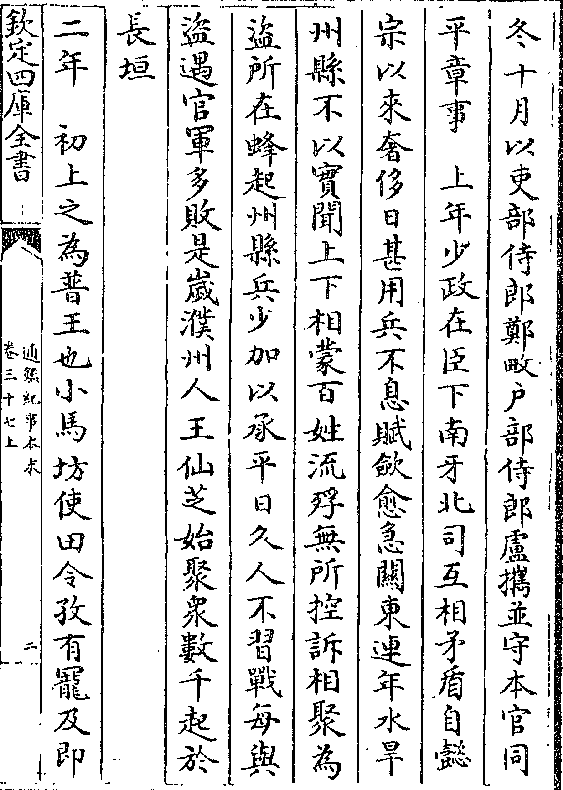 冬十月以吏部侍郎鄭畋户部侍郎盧攜並守本官同
平章事　上年少政在臣下南牙北司互相矛盾自懿
宗以來奢侈日甚用兵不息賦歛愈急關東連年水旱
州縣不以實聞上下相蒙百姓流殍無所控訴相聚為
盜所在蜂起州縣兵少加以承平日久人不習戰每與
盜遇官軍多敗是嵗濮州人王仙芝始聚衆數千起於
長垣
二年　初上之為普王也小馬坊使田令孜有寵及即
欽定四庫全書
通鑑紀事本末
卷三十七上
二